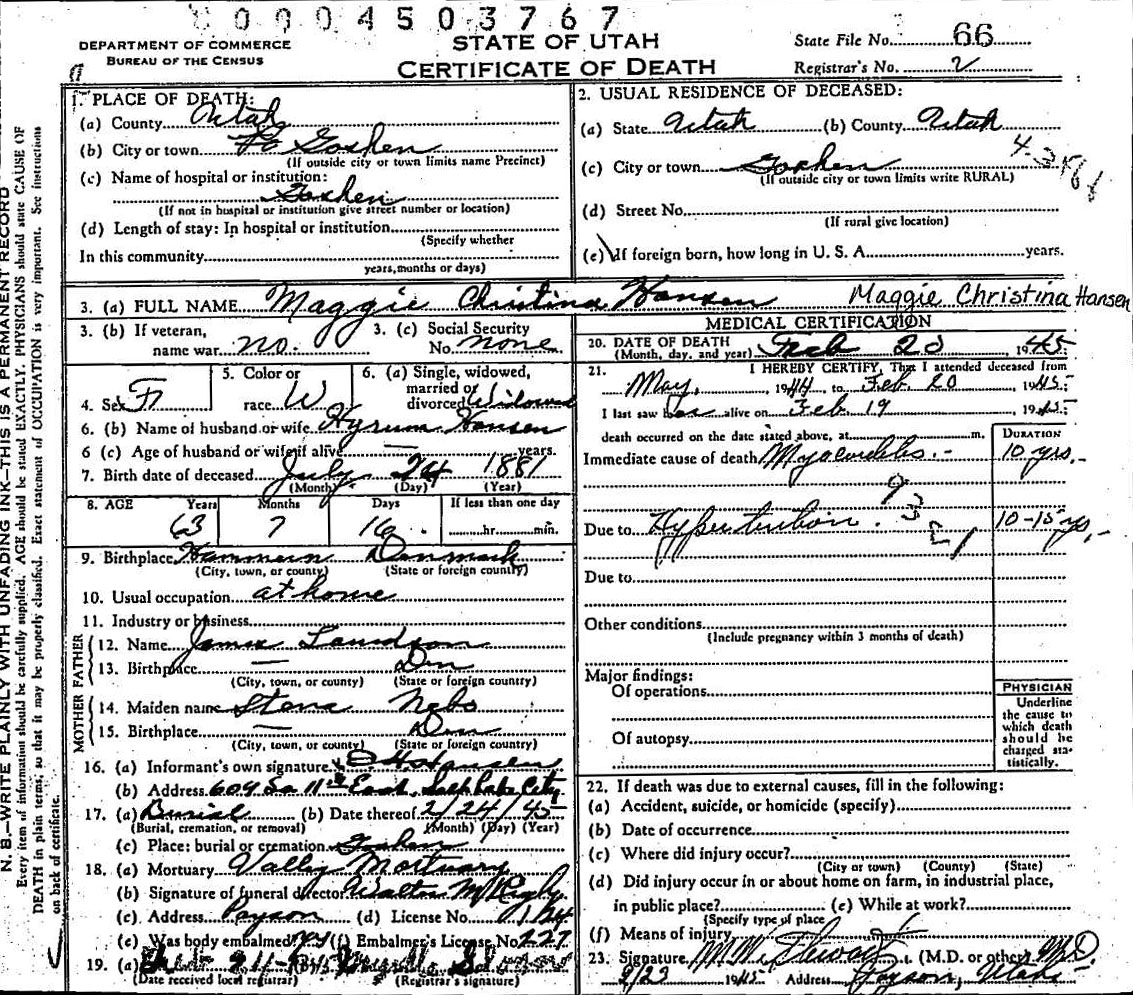 0 0 0 4 5 0 3 7 6 7
DEPARTMENT OF COMMERCE
BUREAU OF THE CENSUS
STATE OF UTAH
CERTIFICATE OF DEATH
State File No. 66
Registrar's No. 2
N. B.—WRITE PLAINLY WITH UNFADING INK—THIS IS A PERMANENT RECORD
Every item of information should be carefully supplied. AGE should be stated EXACTLY. PHYSICIANS should state CAUSE OF
DEATH in plain terms, so that it may be properly classified. Exact statement of OCCUPATION is very important. See instructions
on back of certificate.
1. PLACE OF DEATH:
(a) County Utah
(b) City or town Goshen
(If outside city or town limits name Precinct)
(c) Name of hospital or institution:
Goshen
(If not in hospital or institution give street number or location)
(d) Length of stay: In hospital or institution
(Specify whether
In this community
years, months or days)
2. USUAL RESIDENCE OF DECEASED:
(a) State Utah (b) County Utah
(c) City or town Goshen
(If outside city or town limits write RURAL)
(d) Street No.
(If rural give location)
(e) If foreign born, how long in U. S. A. years.
3. (a) FULL NAME Maggie Christina Hansen Maggie Christina Hansen
3. (b) If veteran, name war no.
3. (c) Social Security No. none
4. Sex F
5. Color or race W
6. (a) Single, widowed, married or divorced Widowed
6. (b) Name of husband or wife Hyrum Hansen
6 (c) Age of husband or wife if alive — years.
7. Birth date of deceased July 24 1881
(Month) (Day) (Year)
8. AGE Years Months Days If less than one day
63 7 16 hr. min.
9. Birthplace Denmark
(City, town, or county) (State or foreign country)
10. Usual occupation at home
11. Industry or business
FATHER
12. Name James
13. Birthplace — Den
(City, town, or county) (State or foreign country)
MOTHER
14. Maiden name Stena Nebo
15. Birthplace — Den
(City, town, or county) (State or foreign country)
16. (a) Informant's own signature Hansen
(b) Address 609 So 11th East, Salt Lake City
17. (a) Burial (b) Date thereof 2/24/45
(Burial, cremation, or removal) (Month) (Day) (Year)
(c) Place: burial or cremation Goshen
18. (a) Mortuary Valley Mortuary
(b) Signature of funeral director Walter M Rigby
(c) Address Payson (d) License No.
(e) Was body embalmed? yes (f) Embalmer's License No. 227
19. (a)
(Date received local registrar) (Registrar's signature)
MEDICAL CERTIFICATION
20. DATE OF DEATH
(Month, day, and year) Feb 20 1945
21. I HEREBY CERTIFY, That I attended deceased from
May, 1944 to Feb 20 1945
I last saw her alive on Feb 19 1945
death occurred on the date stated above, at m.
DURATION
Immediate cause of death Myocarditis.- 10 yrs.-
Due to Hypertension. 10-15 yrs.-
Due to
Other conditions
(Include pregnancy within 3 months of death)
Major findings:
Of operations
Of autopsy
PHYSICIAN
Underline
the cause to
which death
should be
charged sta-
tistically.
22. If death was due to external causes, fill in the following:
(a) Accident, suicide, or homicide (specify)
(b) Date of occurrence
(c) Where did injury occur?
(City or town) (County) (State)
(d) Did injury occur in or about home on farm, in industrial place,
in public place? (e) While at work?
(Specify type of place
(f) Means of injury
23. Signature Stewart (M.D. or other) M.D.
2/23 1945 Address Payson, Utah